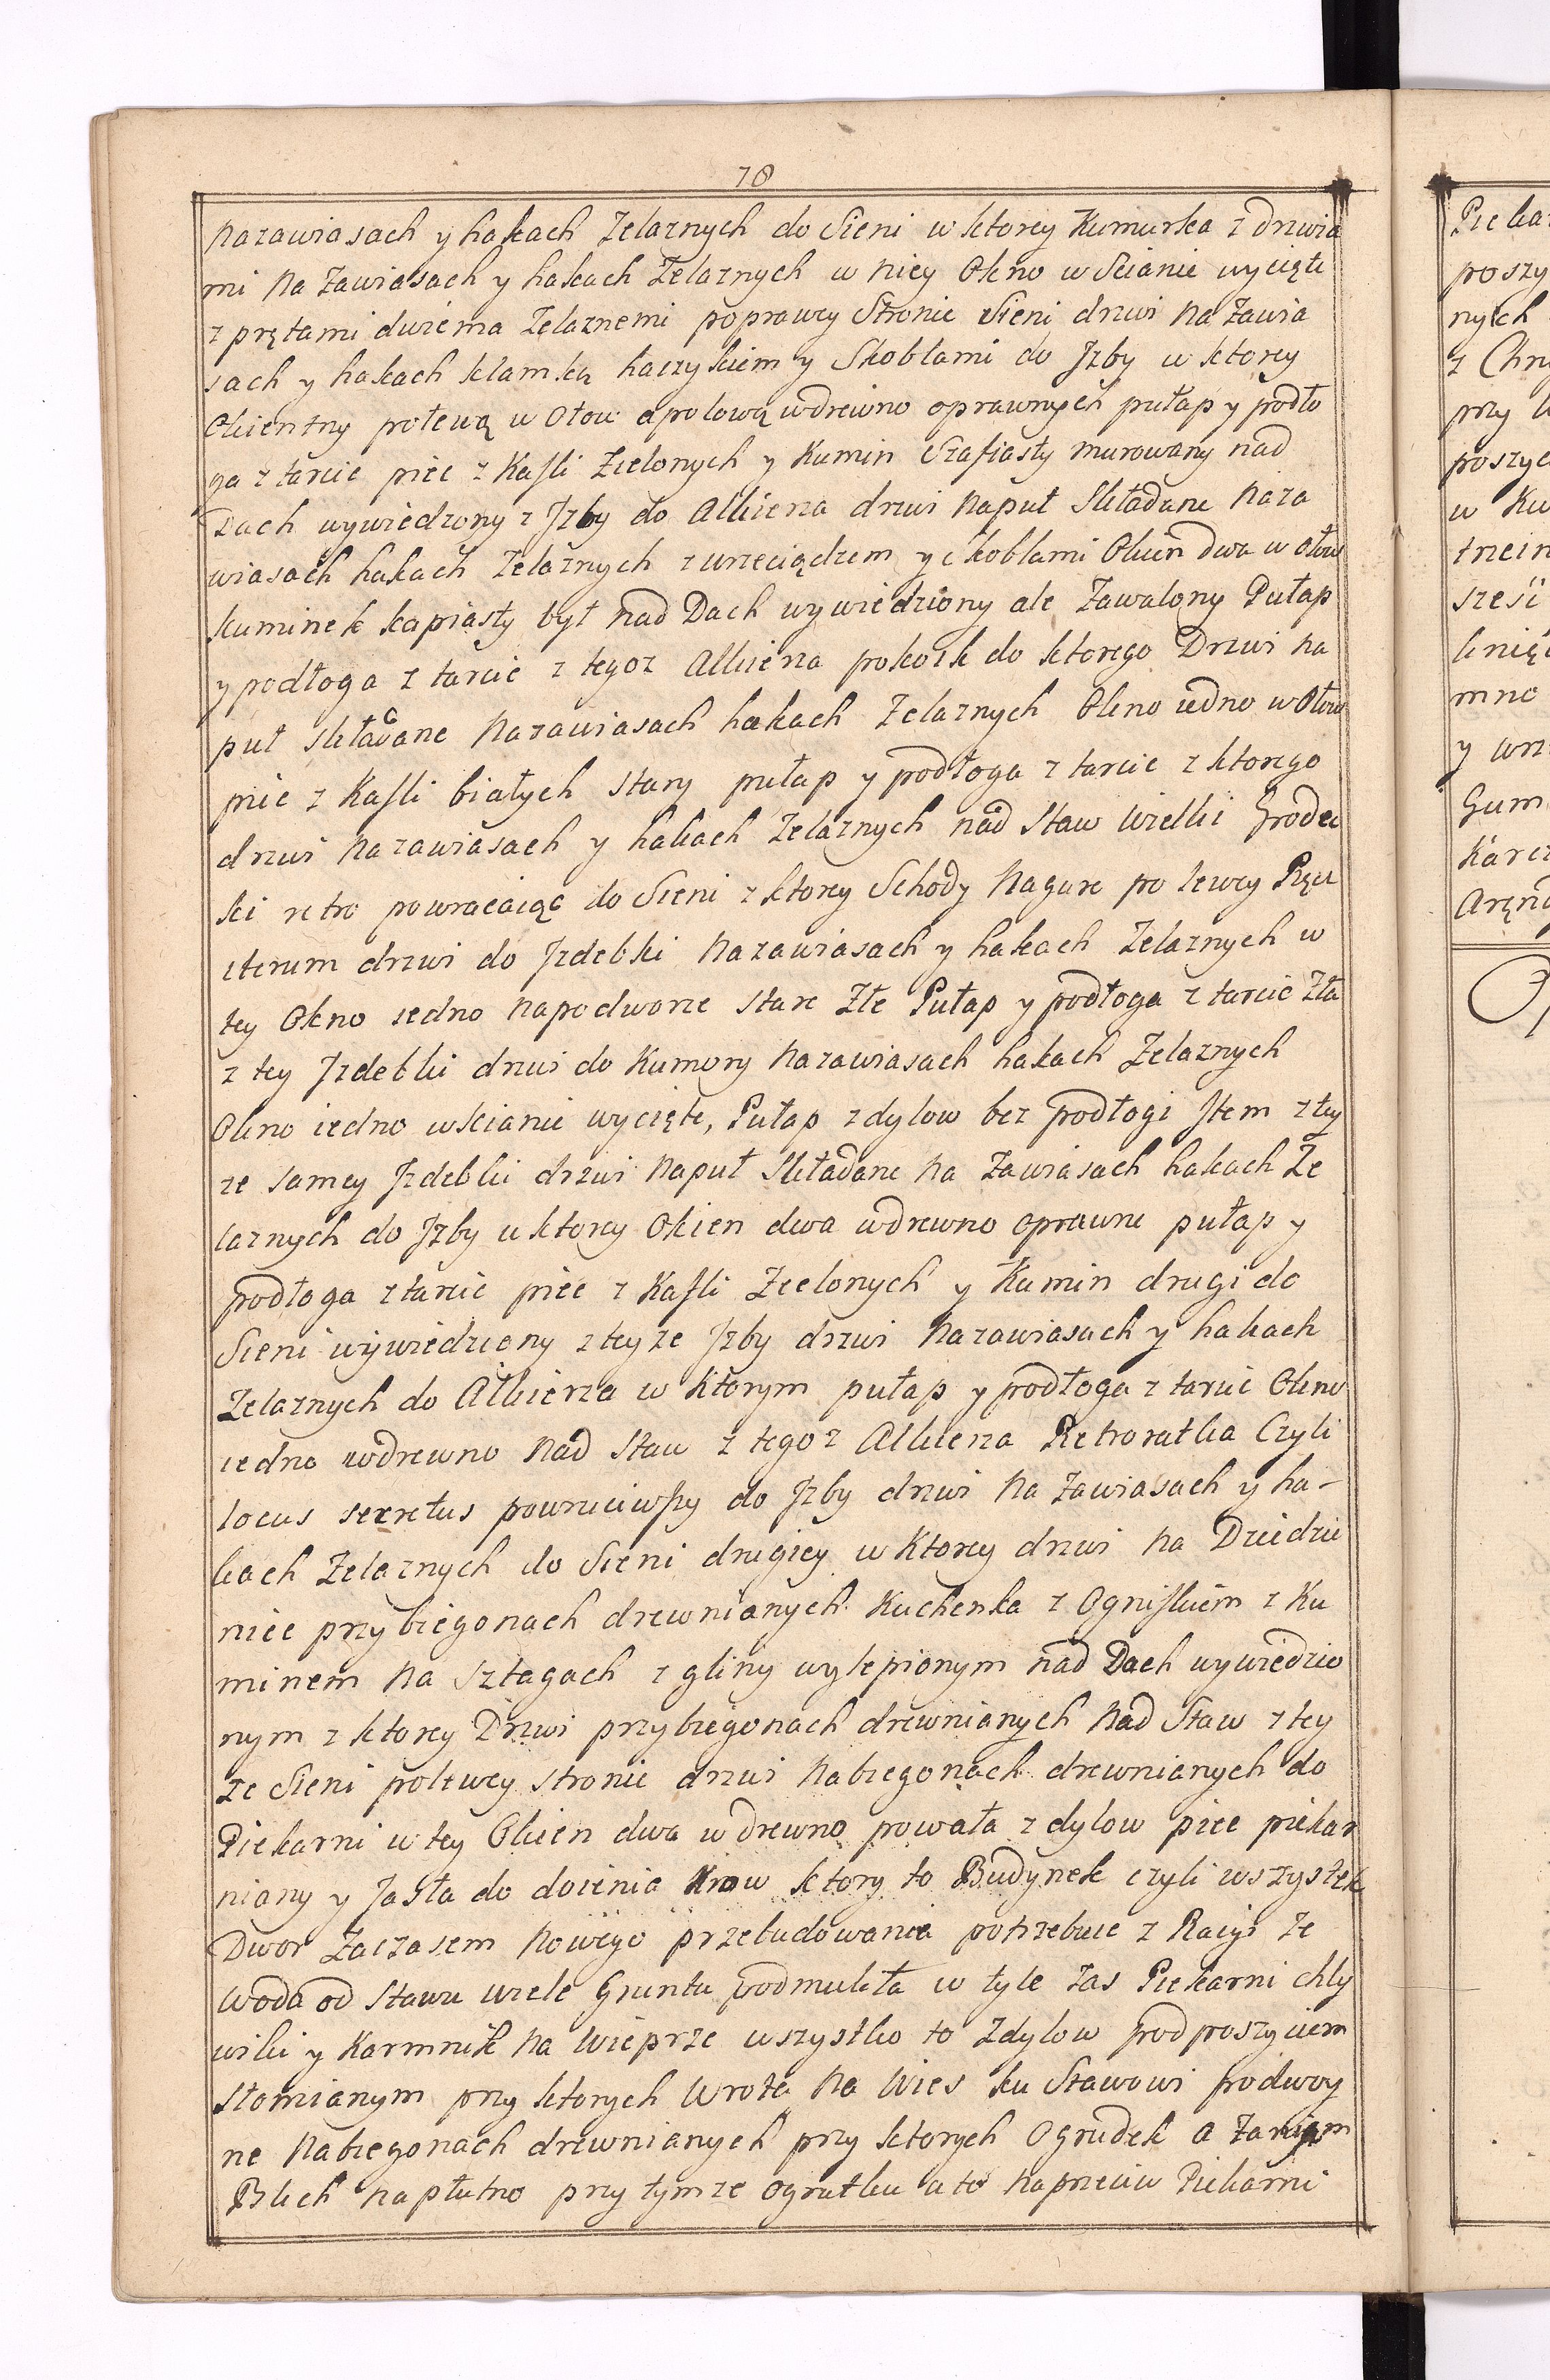 78
Nazawiasach y hakach Zelaznych do Sieni w ktorey Kumurka z drzwia
mi Na Zawiasach y hakach Zelaznych w niey Okno w Scianie wycięte
z prętami dwiema Zelaznemi poprawey Stronie Sieni drzwi Na Zawia
sach y hakach klamką haczykiem y Skoblami do Jzby w ktorey
Okien trzy połewą w Ołow apolową wdrewno oprawnych pułap y podło
ga z tarcic piec z Kafli Zielonych y Kumin Szafiasty murowany nad
Dach wywiedzony z Jzby do Alkierza drzwi Naput Składane Naza
wiasach hakach Zelaznych zwrzeciądzem y skoblami Okien dwa w ołow
kuminek kapiasty był nad Dach wywiedziony ale Zawalony Pułap
y podłoga z tarcic z tegoz Alkierza pokoik do ktorego Drzwi na
puł składane Nazawiasach hakach Zelaznych Okno iedno w Ołow
piec z Kafli białych stary pułap y podłoga z tarcic z ktorego
drzwi Nazawiasach y hakach Zelaznych nad Staw Wielki Grodec
ki retro powracaiąc do Sieni z ktorey Schody Nagure po lewey Ręce
iterum drzwi do Jzdebki Nazawiasach y hakach Zelaznych w
tey Okno iedno Napodworze stare Złe Pułap y podłoga z tarcic Zła
z tey Jzdebki drzwi do Kumory Nazawiasach hakach Zelaznych
Okno iedno wscianie wycięte, Pułap z dylow bez podłogi Jtem z tey
ze samey Jzdebki drzwi Naput Składane Na Zawiasach hakach Ze
laznych do Jzby w ktorey Okien dwa wdrewno oprawne pułap y
podłoga z tarcic piec z Kafli Zielonych y Kumin drugi do
Sieni wywiedziony z teyze Jzby drzwi Nazawiasach y hakach
Zelaznych do Alkierza w Ktorym pułap y podłoga z tarcic Okno
iedno wdrewno Nad Staw z tegoz Alkierza Retroratka Czyli
locus secretus powruciwszy do Jzby drzwi Na Zawiasach y ha-
kach Zelaznych do Sieni drugiey w Ktorey drzwi Na Dziedzi
niec przy biegonach drewnianych. Kuchenka z Ogniskiem z Ku
minem Na sztagach z gliny wylepionym nad Dach wywiedzio
nym z ktorey Drzwi przy biegonach drewnianych Nad Staw z tey
ze Sieni polewey stronie drzwi Nabiegonach drewnianych do
Piekarni w tey Okien dwa w drewno powała z dylow piec piekar
niany y Jasła do doienia Krow ktory to Budynek czyli wszystek
Dwor Zaczasem Nowego przebudowania potrzebuie z Racyi ze
Woda od Stawu wiele Gruntu podmuliła w tyle zas Piekarni chly
wiki y Karmnik Na Wieprze wszystko to Zdylow pod poszyciem
Słomianym przy ktorych Wrota Na Wies ku Stawowi podwoy
ne Nabiegonach drewnianych przy ktorych Ogrudek a Zanięm
Blech Napłutno przy tymze ogrutku a to Naprzeciw Piekarni